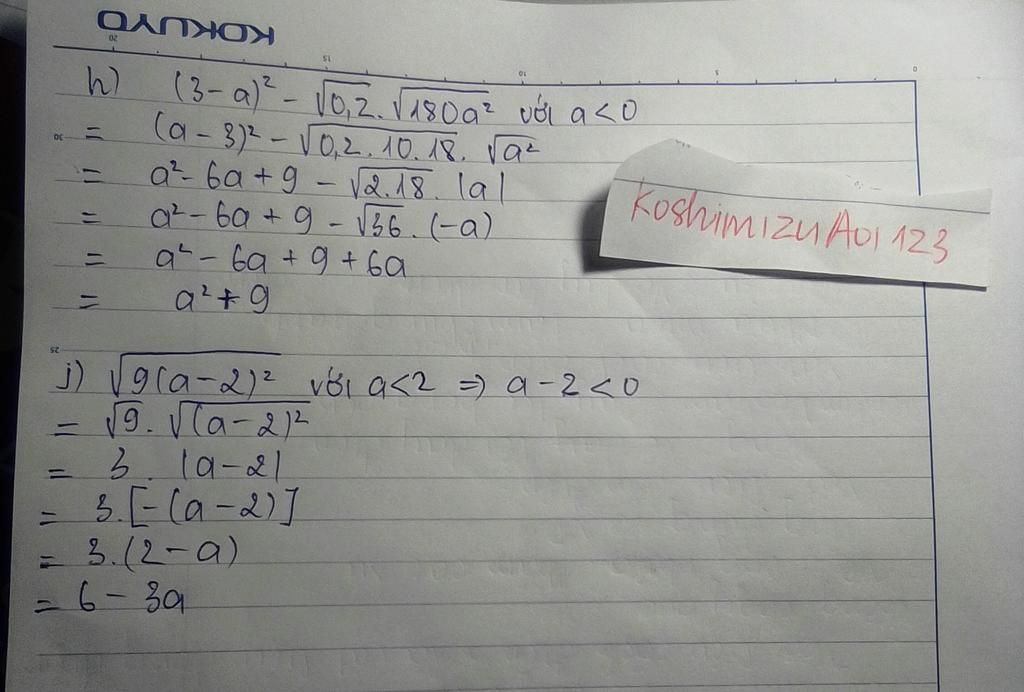 KOKUYO
20 15 10 5 0
h) (3-a)² - √0,2 . √180a² với a<0
30
= (a-3)² - √0,2.10.18 . √a²
= a² - 6a + 9 - √2.18 . |a|
= a² - 6a + 9 - √36 . (-a)
= a² - 6a + 9 + 6a
= a² + 9
KoshimizuAoi123
25
j) √9(a-2)² với a<2 => a-2<0
= √9 . √(a-2)²
= 3 . |a-2|
= 3.[-(a-2)]
= 3.(2-a)
= 6 - 3a